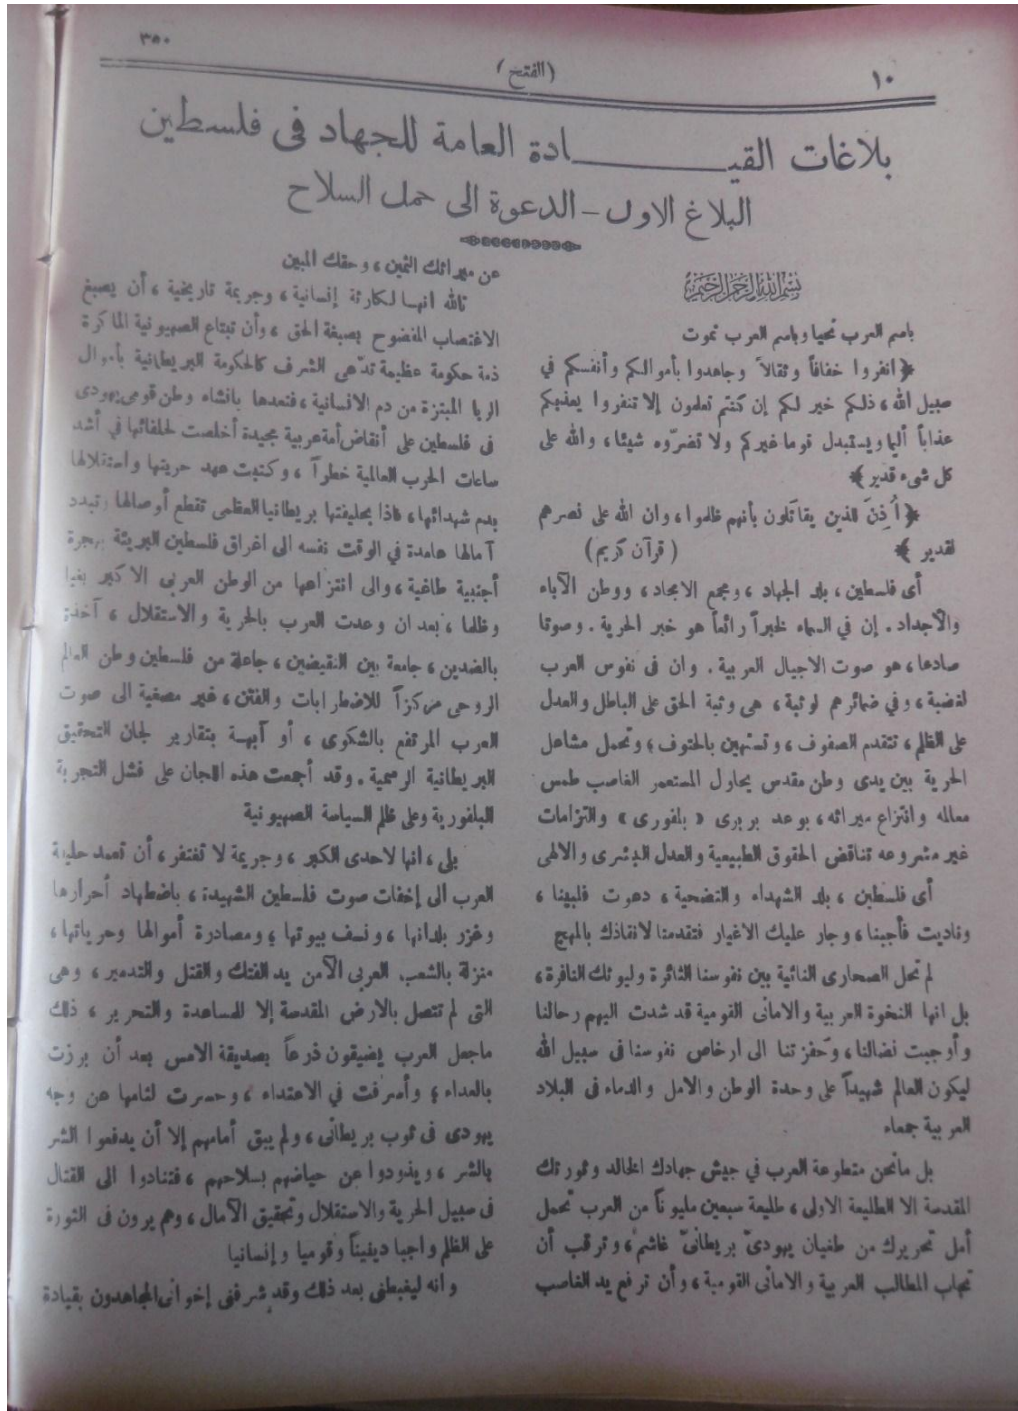 ٣٥٠
(الفتح)
١٠
بلاغات القيـــــادة العامة للجهاد فى فلسطين
البلاغ الاول – الدعوة الى حمل السلاح
بسم الله الرحمن الرحيم
باسم العرب نحيا وباسم العرب نموت
﴿ انفروا خفافاً وثقالاً وجاهدوا بأموالكم وأنفسكم في
سبيل الله، ذلكم خير لكم إن كنتم تعلمون إلا تنفروا يعذبكم
عذاباً أليما ويستبدل قوما غيركم ولا تضرّوه شيئا، والله على
كل شىء قدير ﴾
﴿ أُذِنَ للذين يقاتَلون بأنهم ظلموا، وان الله على نصرهم
لقدير ﴾ ( قرآن كريم )
أى فلسطين، بلد الجهاد، ومجمع الامجاد، ووطن الآباء
والأجداد. إن في السماء لخبراً رائعاً هو خبر الحرية. وصوتا
صادعا، هو صوت الاجيال العربية. وان فى نفوس العرب
لغضبة، وفي ضمائرهم لوثبة، هى وثبة الحق على الباطل والعدل
على الظلم، تتقدم الصفوف، وتستهين بالحتوف؛ وتحمل مشاعل
الحرية بين يدى وطن مقدس يحاول المستعمر الغاصب طمس
معالمه وانتزاع ميراثه، بوعد بربرى « بلفورى » والتزامات
غير مشروعه تناقض الحقوق الطبيعية والعدل البشرى والالهى
أى فلسطين، بلد الشهداء والتضحية، دعوت فلبينا،
وناديت فأجبنا، وجار عليك الاغيار فتقدمنا لانقاذك بالمهج
لم تحل الصحارى النائية بين نفوسنا الثائرة وليوثك النافرة،
بل انها النخوة العربية والامانى القومية قد شدت اليهم رحالنا
وأوجبت نضالنا، وحفزتنا الى ارخاص نفوسنا فى سبيل الله
ليكون العالم شهيداً على وحدة الوطن والامل والدماء فى البلاد
العربية جمعاء
بل مانحن متطوعة العرب في جيش جهادك الخالد وثورتك
المقدسة الا الطليعة الاولى، طليعة سبعين مليوناً من العرب تحمل
أمل تحريرك من طغيان يهودىّ بريطانىّ غاشم، وترقب أن
تجاب المطالب العربية والامانى القومية، وأن ترفع يد الغاصب
عن ميراثك الثمين، وحقك المبين
تالله انهـا لكارثة إنسانية، وجريمة تاريخية، أن يصبغ
الاغتصاب المفضوح بصبغة الحق، وأن تبتاع الصهيونية الماكرة
ذمة حكومة عظيمة تدّعى الشرف كالحكومة البريطانية بأموال
الربا المبتزة من دم الانسانية، فتعدها بانشاء وطن قومى يهودى
فى فلسطين على أنقاض أمة عربية مجيدة أخلصت لحلفائها في أشد
ساعات الحرب العالمية خطراً، وكتبت عهد حريتها واستقلالها
بدم شهدائها، فاذا بحليفتها بريطانيا العظمى تقطع أوصالها وتبدد
آمالها عامدة في الوقت نفسه الى اغراق فلسطين البريئة بهجرة
أجنبية طاغية، والى انتزاعها من الوطن العربى الاكبر بغيا
وظلما، بعد ان وعدت العرب بالحرية والاستقلال، آخذة
بالضدين، جامعة بين النقيضين، جاعلة من فلسطين وطن العالم
الروحى مركزاً للاضطرابات والفتن، غير مصغية الى صوت
العرب المرتفع بالشكوى، أو آبهة بتقارير لجان التحقيق
البريطانية الرسمية. وقد أجمعت هذه اللجان على فشل التجربة
البلفورية وعلى ظلم السياسة الصهيونية
بلى، انها لاحدى الكبر، وجريمة لا تغتفر، أن تعمد حليفة
العرب الى إخفات صوت فلسطين الشهيدة، باضطهاد أحرارها
وغزر بلدانها، ونسف بيوتها؛ ومصادرة أموالها وحرياتها،
منزلة بالشعب العربى الآمن يد الفتك والقتل والتدمير، وهى
التى لم تتصل بالارض المقدسة إلا للمساعدة والتحرير، ذلك
ماجعل العرب يضيقون ذرعاً بصديقة الامس بعد أن برزت
بالعداء؛ وأسرفت في الاعتداء، وحسرت لثامها عن وجه
يهودى فى ثوب بريطانى، ولم يبق أمامهم إلا أن يدفعوا الشر
بالشر، ويذودوا عن حياضهم بسلاحهم، فتنادوا الى القتال
فى سبيل الحرية والاستقلال وتحقيق الآمال، وهم يرون فى الثورة
على الظلم واجبا دينيناً وقوميا وإنسانيا
وانه ليغبطنى بعد ذلك وقد شرفنى إخوانى المجاهدون بقيادة